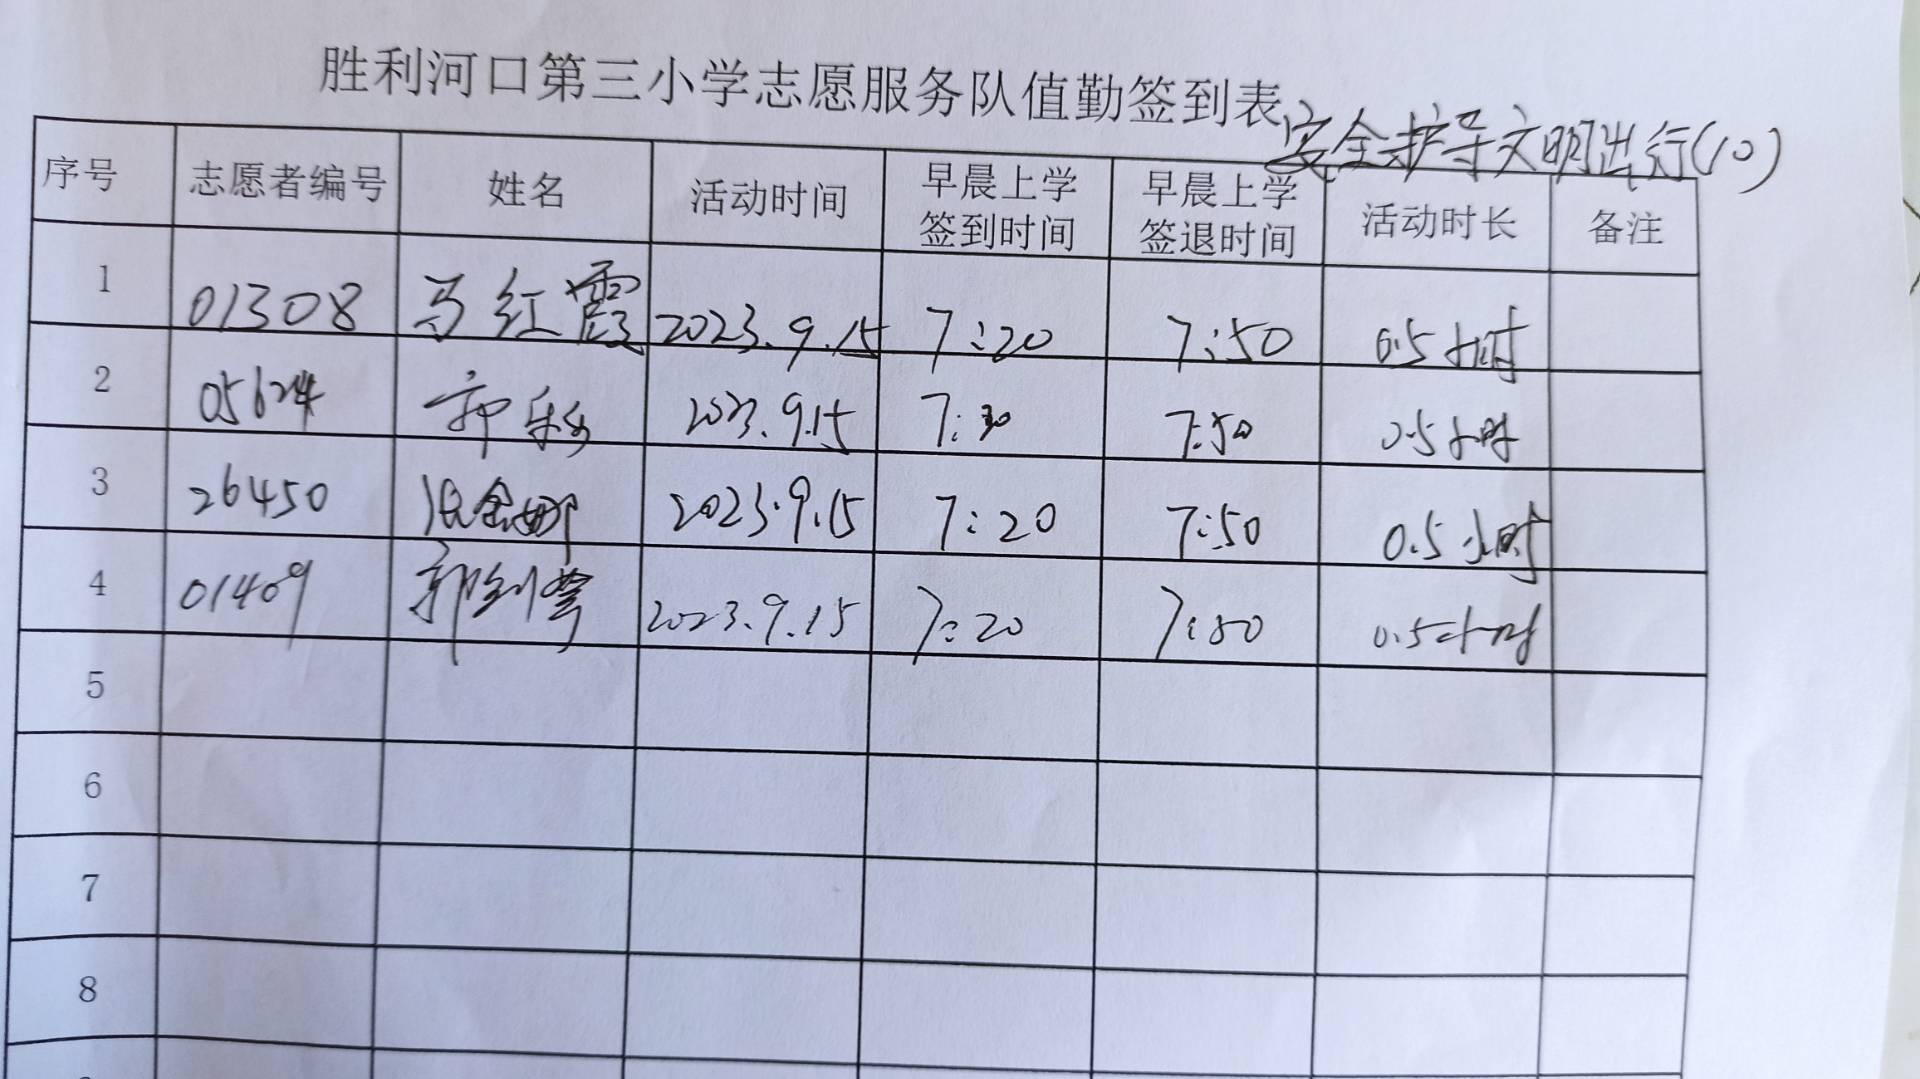 胜利河口第三小学志愿服务队值勤签到表
安全护导文明出行(10)
序号 志愿者编号 姓名 活动时间 早晨上学签到时间 早晨上学签退时间 活动时长 备注
1 01308 马红霞 2023.9.15 7:20 7:50 0.5小时
2 05624 郭 2023.9.15 7: 7:50 0.5小时
3 26450 2023.9.15 7:20 7:50 0.5小时
4 01409 郭剑 2023.9.15 7:20 7:50 0.5小时
5
6
7
8